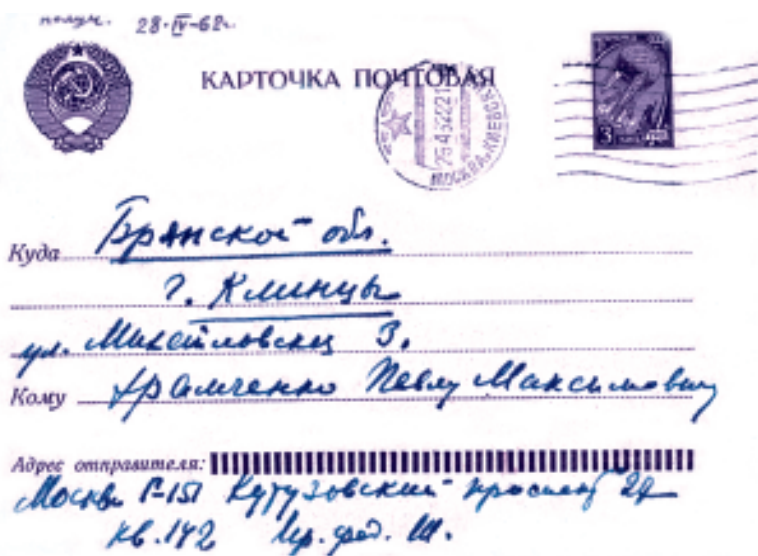 получ. 28-IV-62г.
КАРТОЧКА ПОЧТОВАЯ
МОСКВА КИЕВСК
3
Куда Брянской обл.
г. Клинцы
ул. Михайловская 3.
Кому Храмченко Павлу Максимовичу
Адрес отправителя:
Москва Г-151 Кутузовский проспект 27
кв. 142